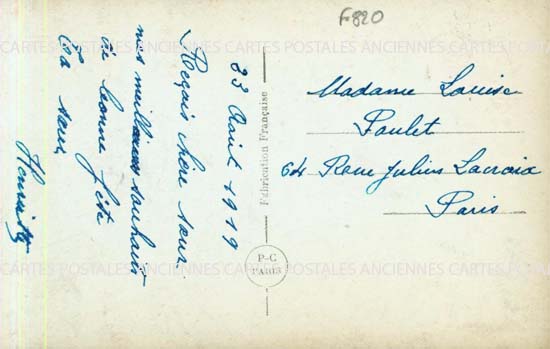 F820
23 Août 1919
Reçois chère sœur
nos meilleurs souhaits
de bonne fête
Ta sœur
Henriette
Fabrication Française
P-C
PARIS
Madame Louise
Poulet
64 Rue Julius Lacroix
Paris
CARTES POSTALES ANCIENNES CARTES POSTALES ANCIENNES
POSTALES ANCIENNES CARTES POSTALES ANCIENNES CARTES POSTALES